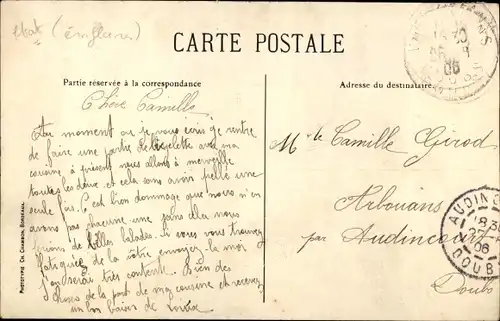 CARTE POSTALE
Partie réservée à la correspondance
Adresse du destinataire
Chère Camille
Au moment où je vous écris je rentre
de faire une partie de bicyclette avec ma
cousine, à présent nous allons à merveille
toutes les deux, et cela sans avoir pelle une
seule fois. C'est bien dommage que nous n'en
avons pas chacune une, nous
de belles balades. Si vous vous trouvez
de la vôtre envoyez la moi
je serai très contente. Bien des
choses de la part de ma cousine et recevez
un bon baiser de
Mlle Camille Girod
Arbouans
par Audincourt
Doubs
PHOTOTYPIE CH. CHAMBON, BORDEAUX.
30
06
AUDINCO
8 30
06
DOUBS